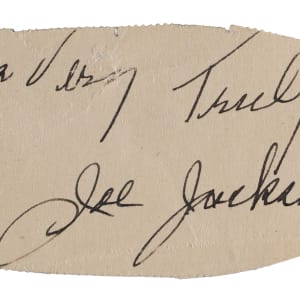 Very Truly
Joe Jackson